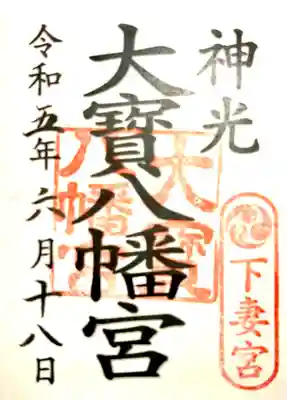 神光
下妻宮
大寶八幡宮
大寶
八幡宮
令和五年六月十八日